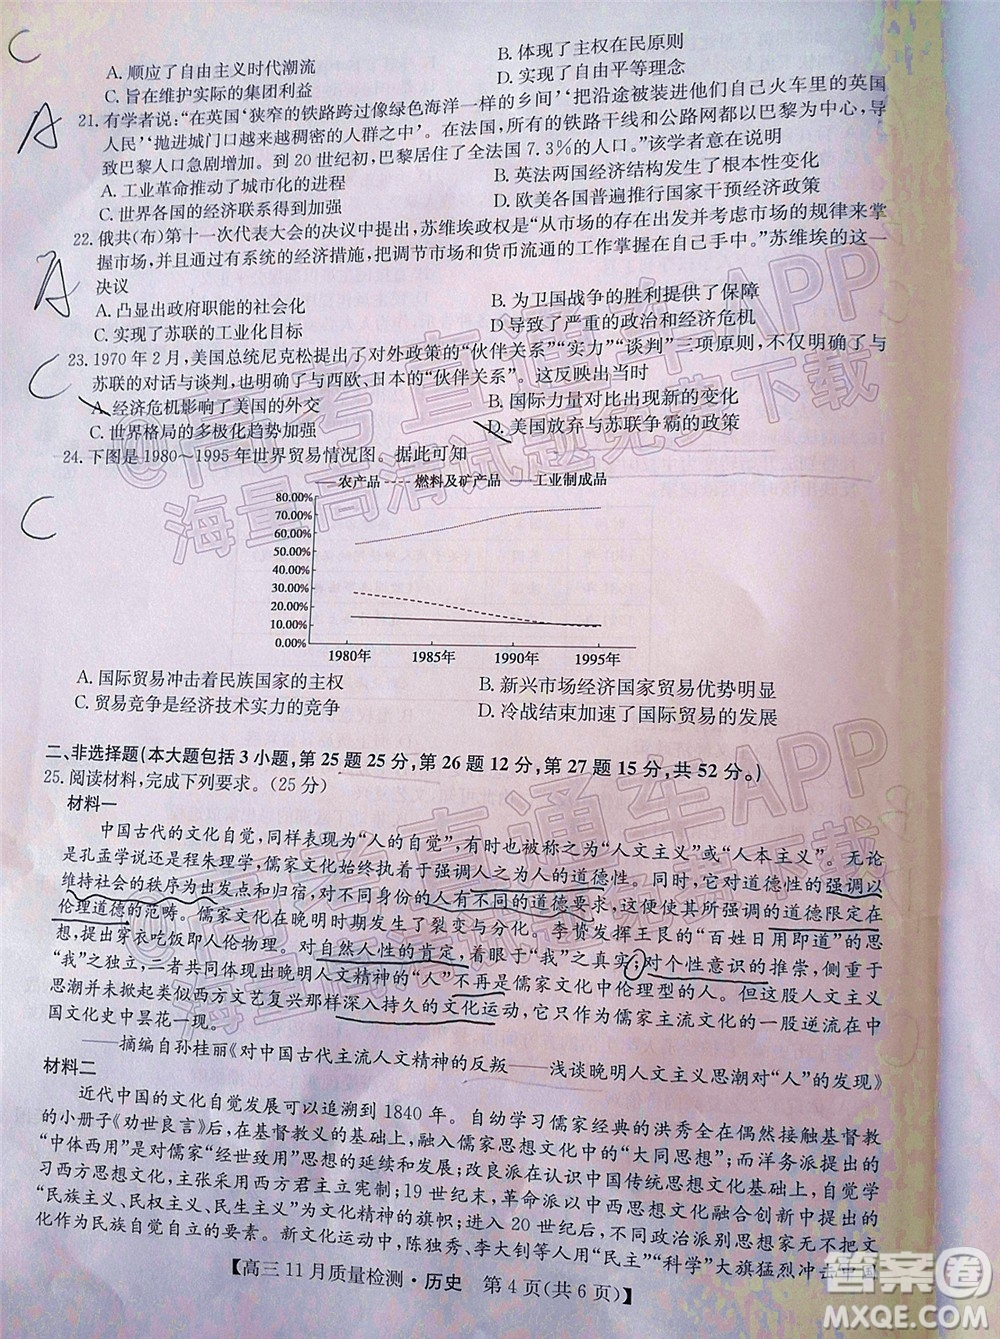 C
A. 顺应了自由主义时代潮流
B. 体现了主权在民原则
C. 旨在维护实际的集团利益
D. 实现了自由平等理念
A
21. 有学者说:“在英国‘狭窄的铁路跨过像绿色海洋一样的乡间’‘把沿途被装进他们自己火车里的英国
人民’‘抛进城门口越来越稠密的人群之中’。在法国,所有的铁路干线和公路网都以巴黎为中心,导
致巴黎人口急剧增加。到 20 世纪初,巴黎居住了全法国 7.3%的人口。”该学者意在说明
A. 工业革命推动了城市化的进程
B. 英法两国经济结构发生了根本性变化
C. 世界各国的经济联系得到加强
D. 欧美各国普遍推行国家干预经济政策
A
22. 俄共(布)第十一次代表大会的决议中提出,苏维埃政权应“从市场的存在出发并考虑市场的规律来掌
握市场,通过有系统的经济措施,把调节市场和货币流通的工作掌握在自己手中。”苏维埃的这一
决议
A. 凸显出政府职能的社会化
B. 为卫国战争的胜利提供了保障
C. 实现了苏联的工业化目标
D. 导致了严重的政治和经济危机
C
23. 1970 年 2 月,美国总统尼克松提出了对外政策的“伙伴关系”“实力”“谈判”三项原则,不仅重视了与
苏联的对话与谈判,也加强了与西欧、日本的“伙伴关系”。这反映出当时
A. 经济危机影响了美国的外交
B. 国际力量对比出现新的变化
C. 世界格局的多极化趋势加强
D. 美国放弃与苏联争霸的政策
C
24. 下图是 1980～1995 年世界贸易情况图。据此可知
农产品 燃料及矿产品 工业制成品
80.00%
70.00%
60.00%
50.00%
40.00%
30.00%
20.00%
10.00%
0.00%
1980年 1985年 1990年 1995年
A. 国际贸易冲击着民族国家的主权
B. 新兴市场经济国家贸易优势明显
C. 贸易竞争是经济技术实力的竞争
D. 冷战结束加速了国际贸易的发展
二、非选择题(本大题包括 3 小题,第 25 题 25 分,第 26 题 12 分,第 27 题 15 分,共 52 分。)
25. 阅读材料,完成下列要求。(25 分)
材料一
中国古代的文化自觉,同样表现为“人的自觉”,有时也被称之为“人文主义”或“人本主义”。无论
是孔孟学说还是程朱理学,儒家文化始终执着于强调人之为人的道德性。同时,它对道德性的强调以
维持社会的秩序为出发点和归宿,对不同身份的人有不同的道德要求,使其所强调的道德限定在
伦理道德的范畴。儒家文化在晚明时期发生了裂变与分化。李贽发挥王艮的“百姓日用即道”的思
想,提出穿衣吃饭即人伦物理。对自然人性的肯定,着眼于“我”之真实;对个性意识的推崇,倾心于
“我”之独立,二者共同体现出晚明人文精神的“人”不再是儒家文化中伦理型的人。但这股人文主义
思潮并未掀起类似西方文艺复兴那样深入持久的文化运动,它只是作为儒家主流文化的一股逆流在中
国文化史中昙花一现。
——摘编自孙桂丽《对中国古代主流人文精神的反叛——浅谈晚明人文主义思潮对“人”的发现》
材料二
近代中国的文化自觉发展可以追溯到 1840 年。自幼学习儒家经典的洪秀全在偶然接触基督教
的小册子《劝世良言》后,在基督教义的基础上,融入儒家思想文化中的“大同思想”;而洋务派提出的
“中体西用”是对儒家“经世致用”思想的延续和发展;改良派在认识中国传统思想文化的基础上,学
习西方思想文化,主张采用西方君主立宪制;19 世纪末,革命派在中西文化融合创新的基础上,以
“民族主义、民权主义、民生主义”作为文化精神的旗帜;进入 20 世纪后,不同政治派别倡导把文
化作为民族自觉自立的要素。新文化运动中,陈独秀、李大钊等人用“民主”“科学”大旗猛烈冲击中国
【高三 11 月质量检测·历史 第 4 页(共 6 页)】
高考直通车APP
海量高清试题免费下载
直通车APP
答案圈
MXQE.COM